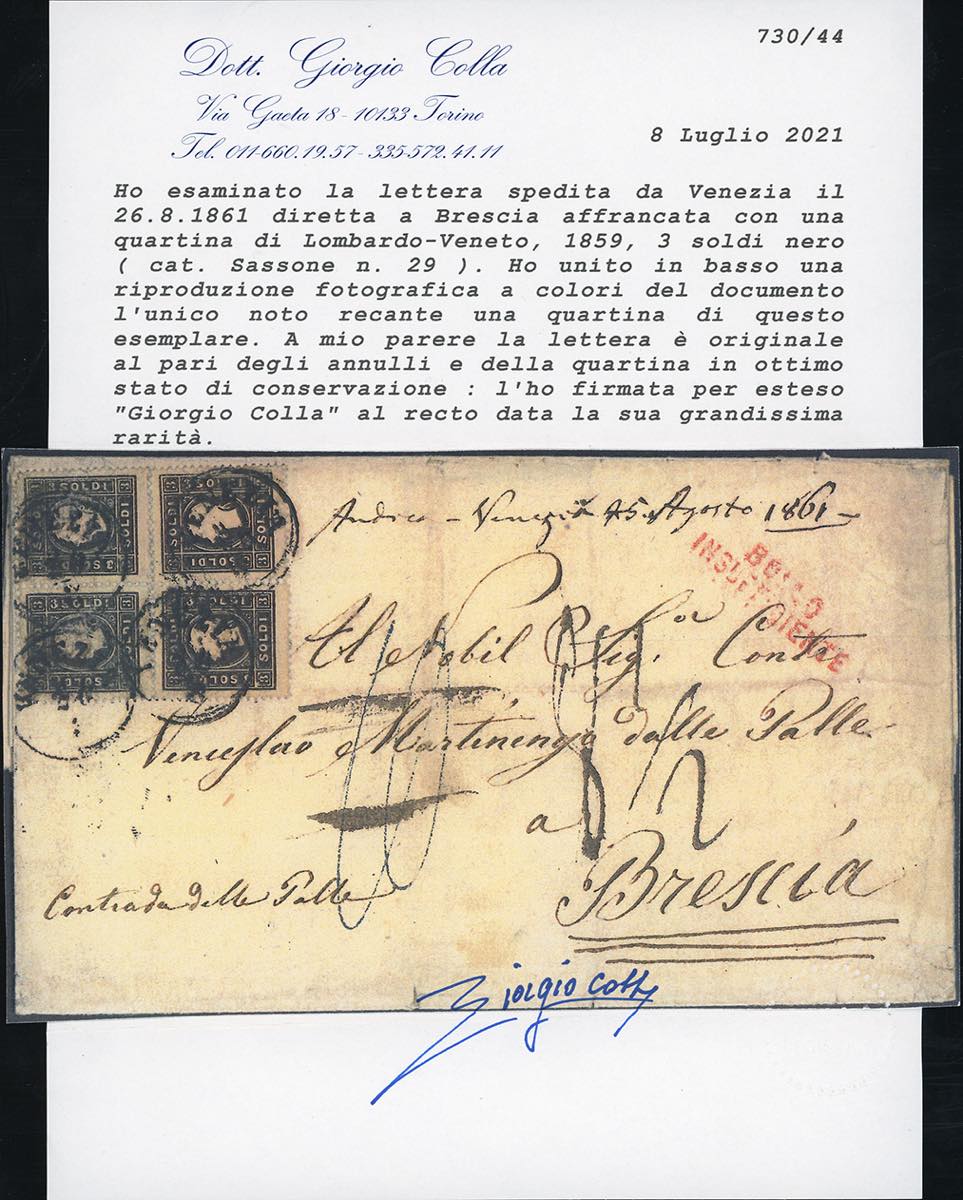 730/44
Dott. Giorgio Colla
Via Gaeta 18 - 10133 Torino
Tel. 011-660.19.57 - 335-572.41.11
8 Luglio 2021
Ho esaminato la lettera spedita da Venezia il
26.8.1861 diretta a Brescia affrancata con una
quartina di Lombardo-Veneto, 1859, 3 soldi nero
( cat. Sassone n. 29 ). Ho unito in basso una
riproduzione fotografica a colori del documento
l'unico noto recante una quartina di questo
esemplare. A mio parere la lettera è originale
al pari degli annulli e della quartina in ottimo
stato di conservazione : l'ho firmata per esteso
"Giorgio Colla" al recto data la sua grandissima
rarità.
3 SOLDI 3
SOLDI
SOLDI
SOLDI
3 SOLDI 3
SOLDI
Venezia 25 Agosto 1861
BOLLO
INSUFFICIENTE
Al Nobil Sig. Conte
Venceslao Martinengo dalle Palle
a
Brescia
Contrada delle Palle
Giorgio Colla